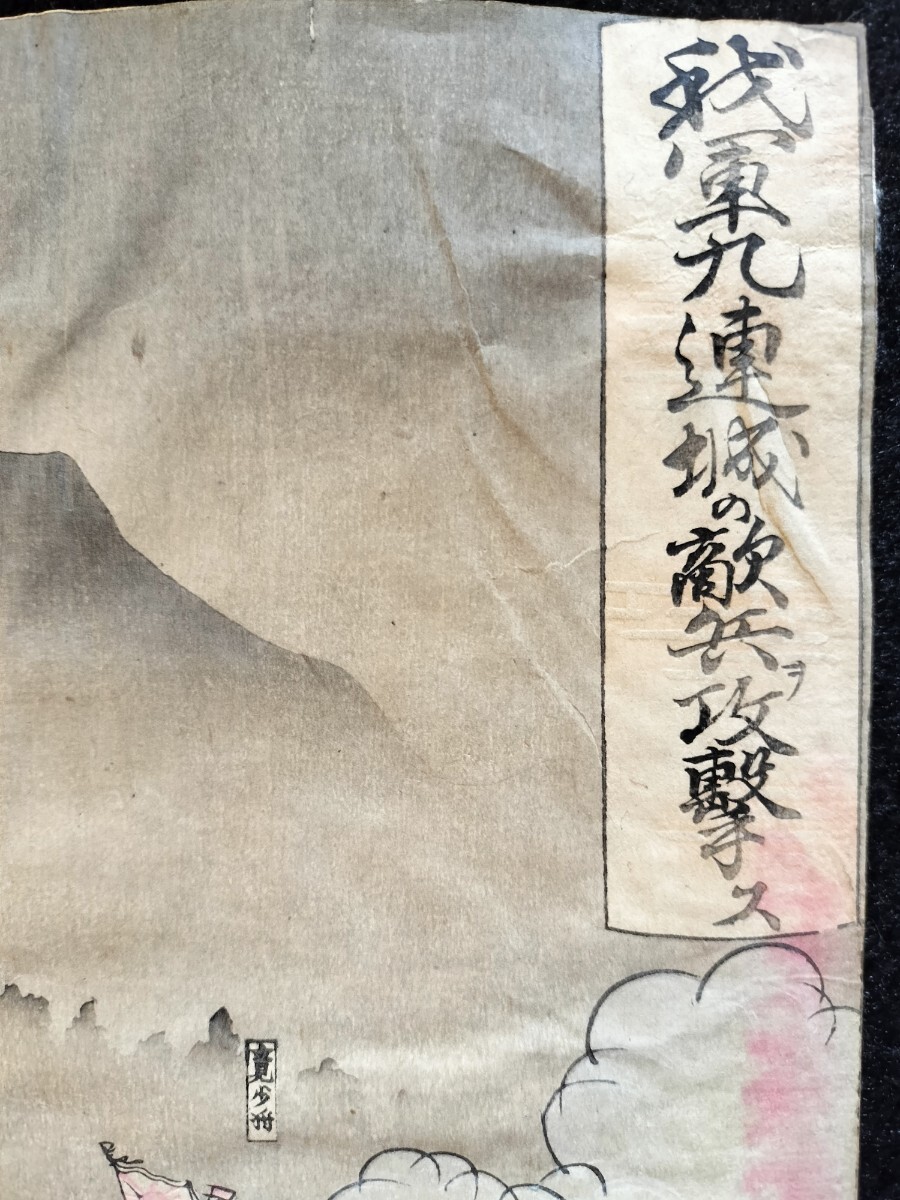 我軍九連城の敵兵ヲ攻撃ス
少将